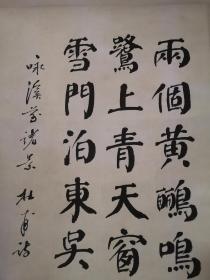 兩個黃鸝鳴
鷺上青天窗
雪門泊東吳
咏溪諸景 杜甫詩